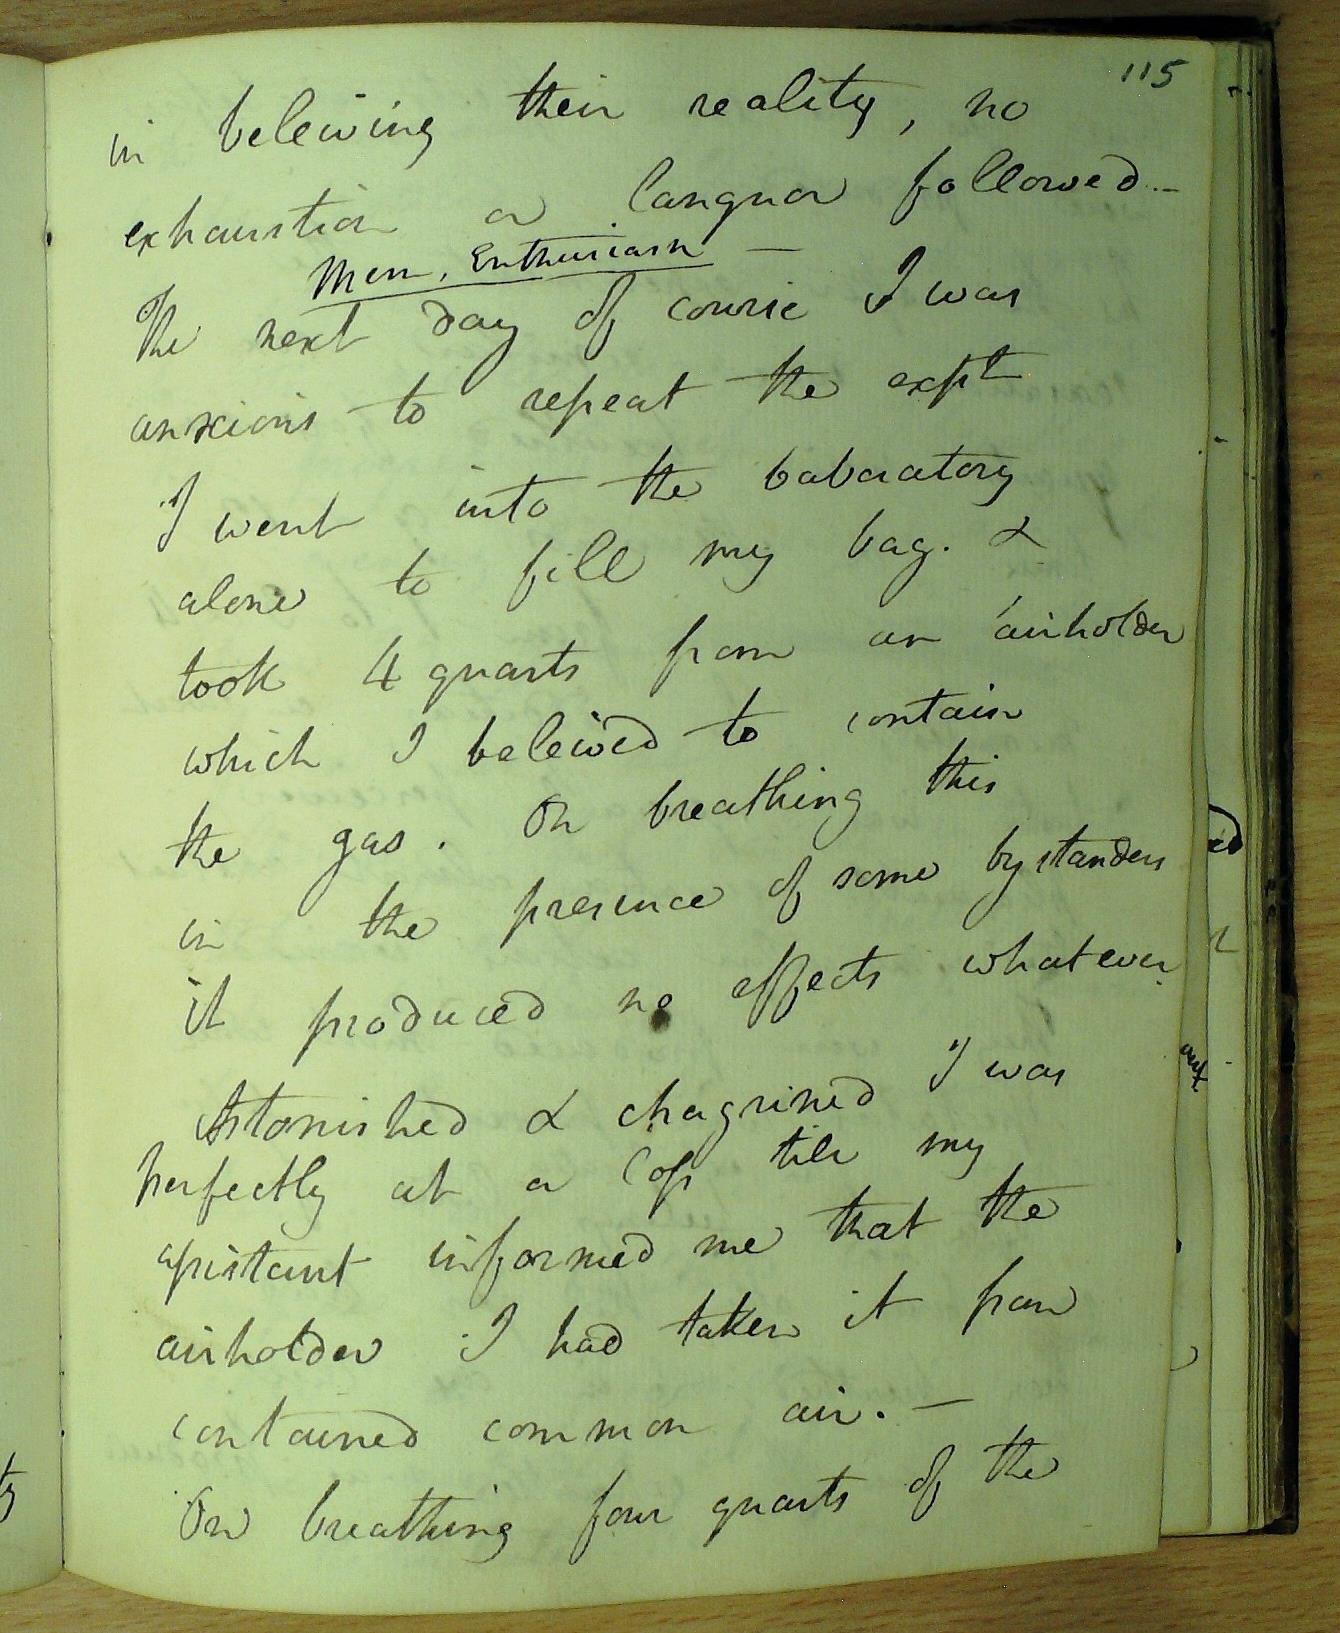 115
in beleiving their reality, no
exhaustion or languor followed —
Mem. Enthusiasm —
The next day of course I was
anxious to repeat the expt
I went into the laboratory
alone to fill my bag. &
took 4 quarts from an airholder
which I beleived to contain
the gas. On breathing this
in the presence of some bystanders
it produced no effects whatever.
Astonished & chagrined I was
perfectly at a loss till my
assistant informed me that the
airholder I had taken it from
contained common air. —
On breathing four quarts of the